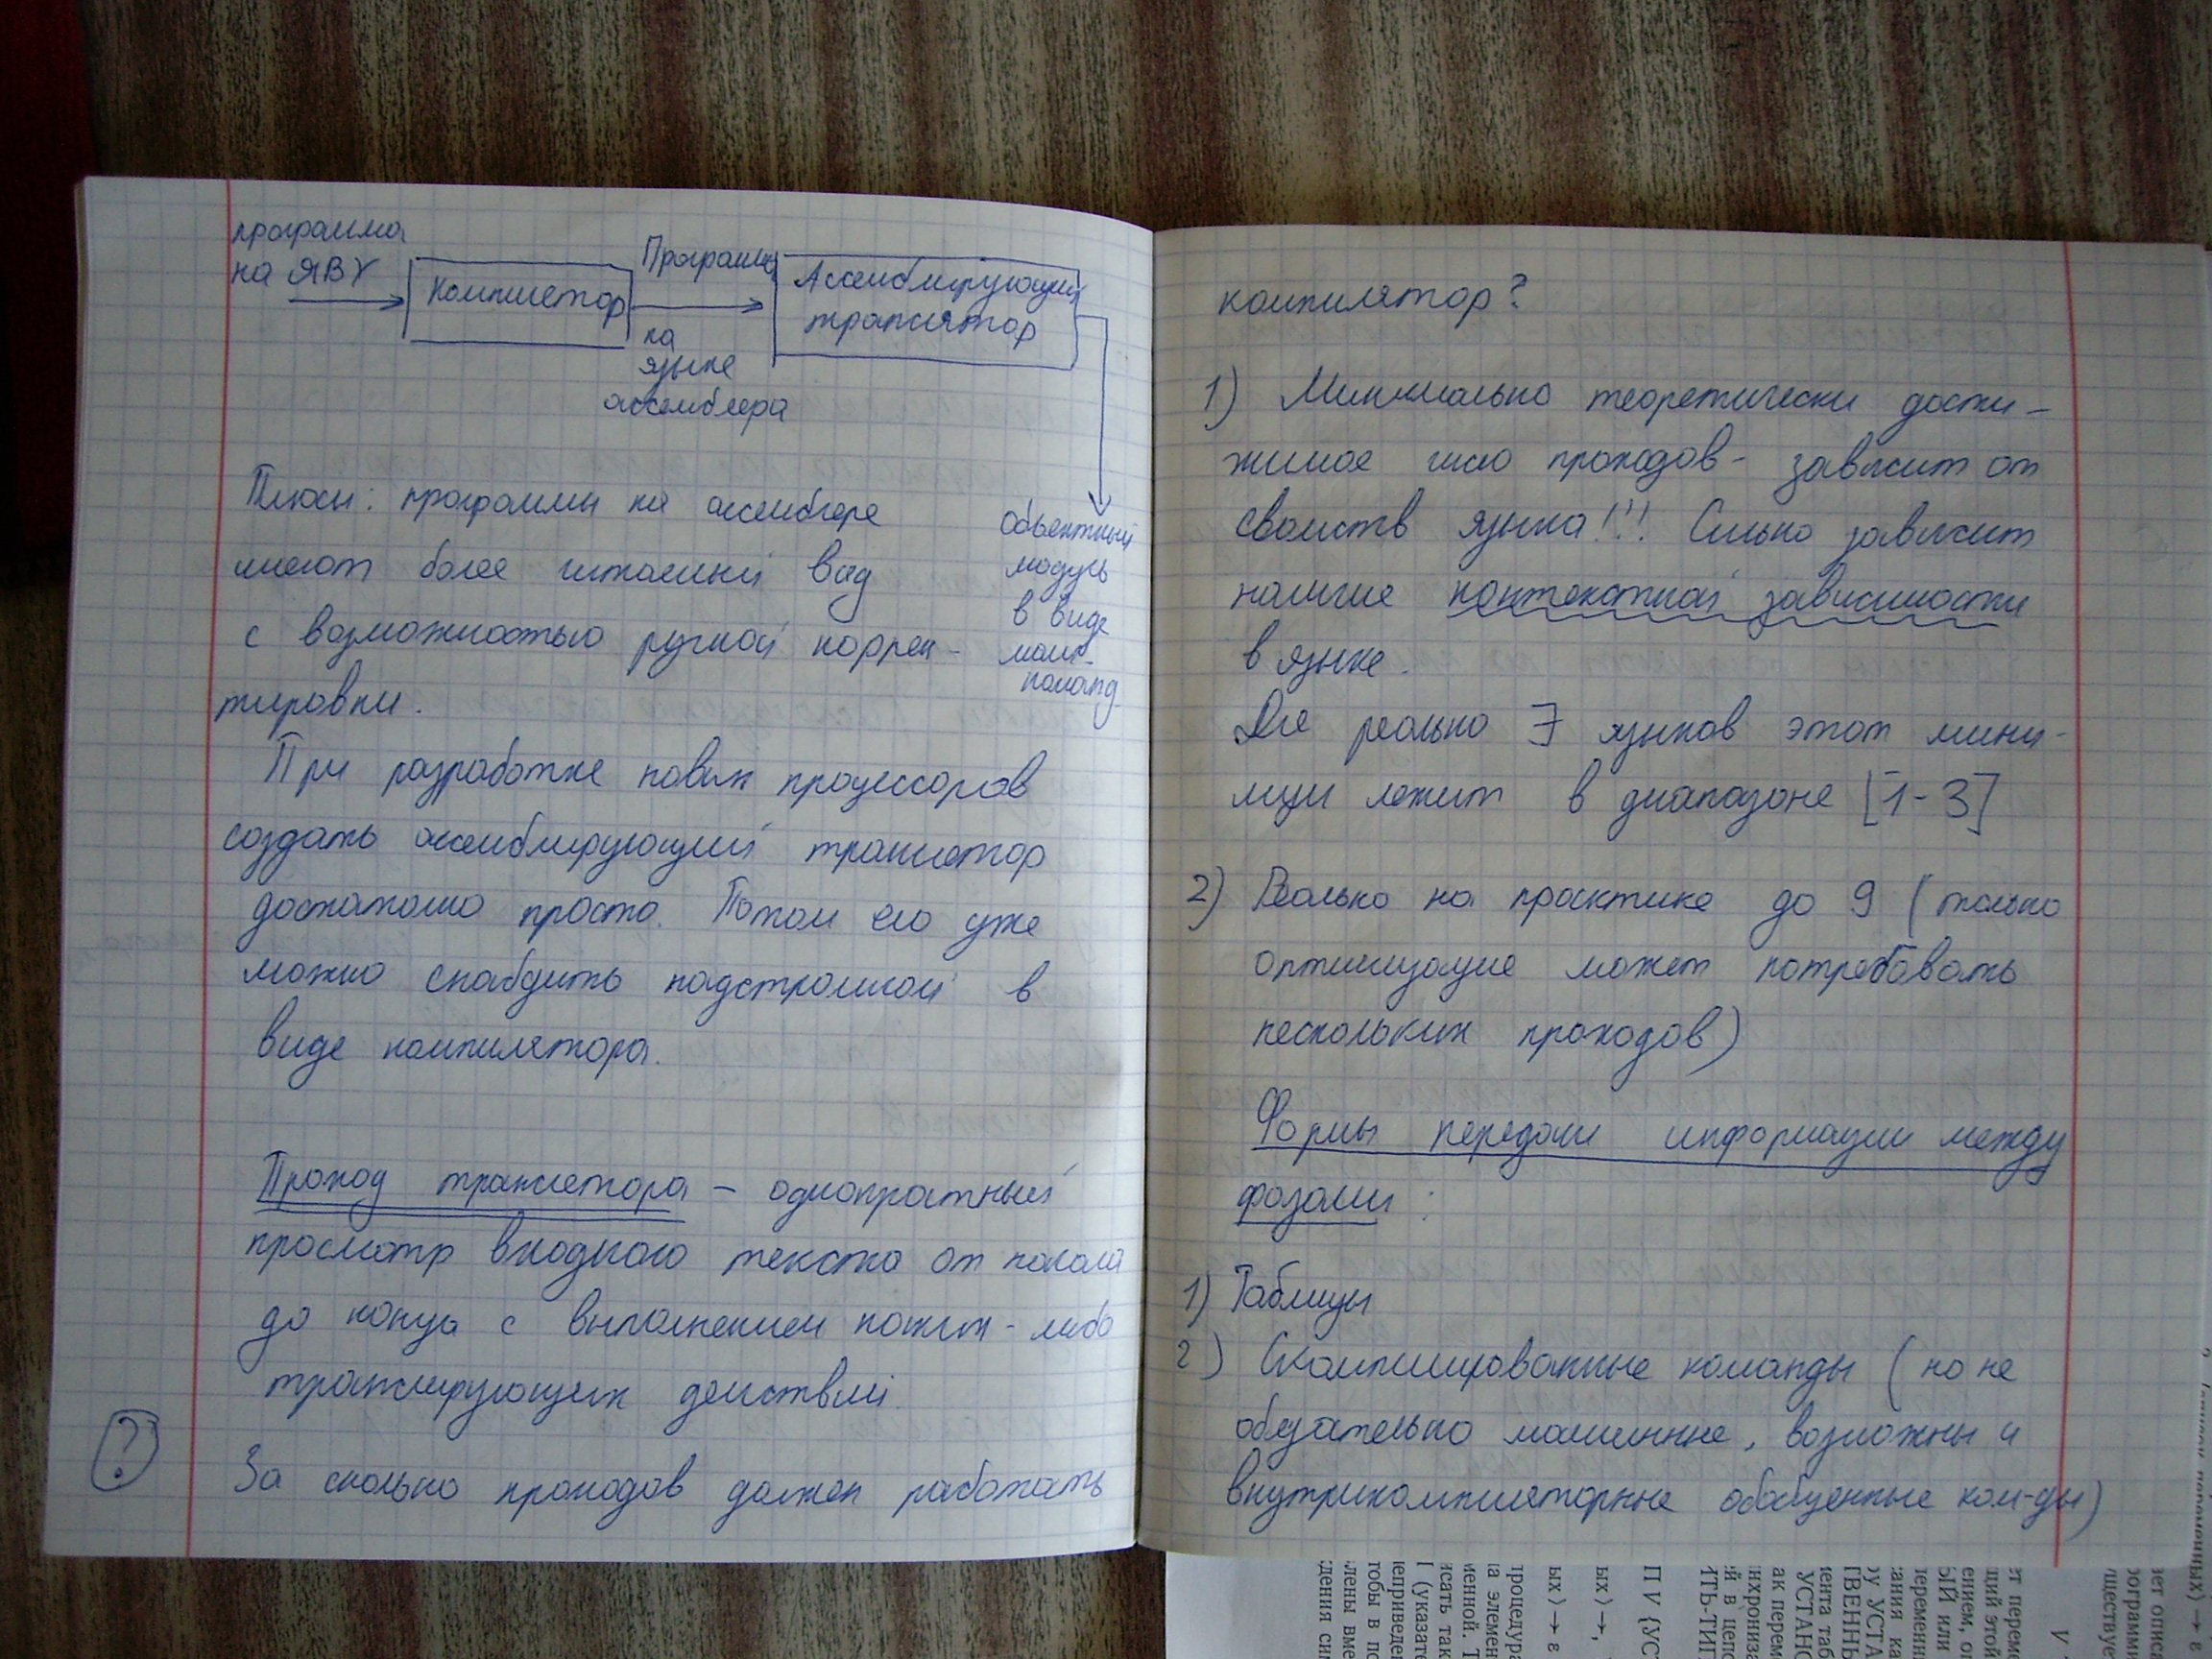 программа
на ЯВУ
Компилятор
Программа
на
языке
ассемблера
Ассемблирующий
транслятор
объектный
модуль
в виде
маш.
команд
Плюсы: программы на ассемблере
имеют более читаемый вид
с возможностью ручной коррек-
тировки.
При разработке новых процессоров
создать ассемблирующий транслятор
достаточно просто. Потом его уже
можно снабдить надстройкой в
виде компилятора.
Проход транслятора – однократный
просмотр входного текста от начала
до конца с выполнением каких-либо
транслирующих действий.
?
За сколько проходов должен работать
компилятор?
1) Минимально теоретически дости-
жимое число проходов - зависит от
свойств языка!!! Сильно зависит
наличие контекстной зависимости
в языке.
Для реально ∃ языков этот мини-
мум лежит в диапазоне [1-3]
2) Реально на практике до 9 (только
оптимизация может потребовать
нескольких проходов)
Формы передачи информации между
фазами:
1) Таблицы
2) Скомпилированные команды (но не
обязательно машинные, возможны и
внутрикомпиляторные обобщенные ком-ды)